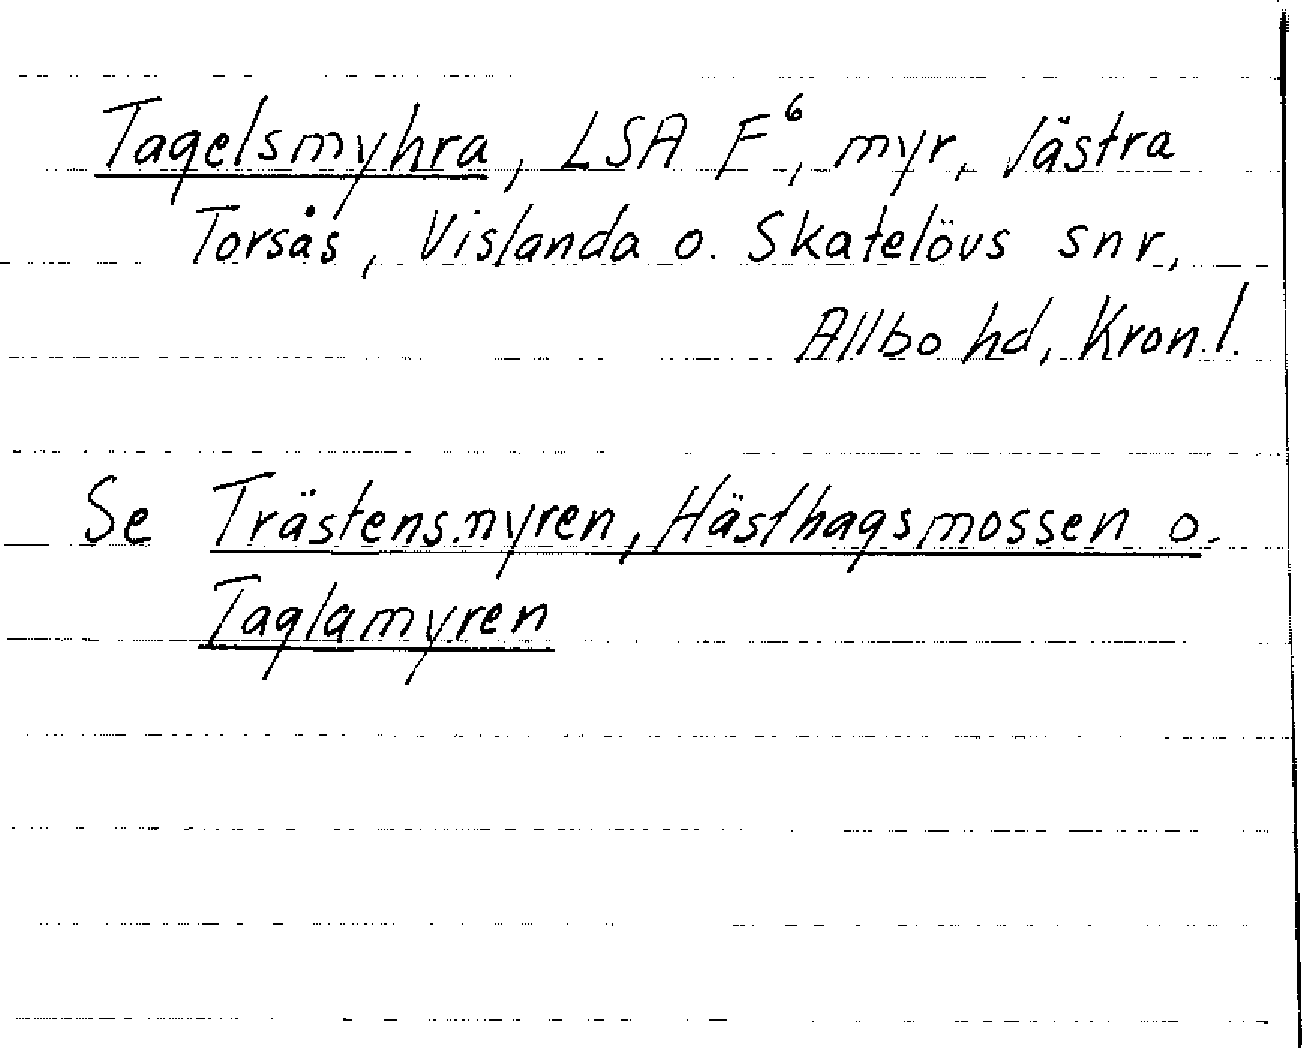 Tagelsmyhra, LSA F⁶, myr, Västra
Torsås, Vislanda o. Skatelövs snr,
Allbo hd, Kron.l.
Se Trästensmyren, Hästhagsmossen o.
Taglamyren